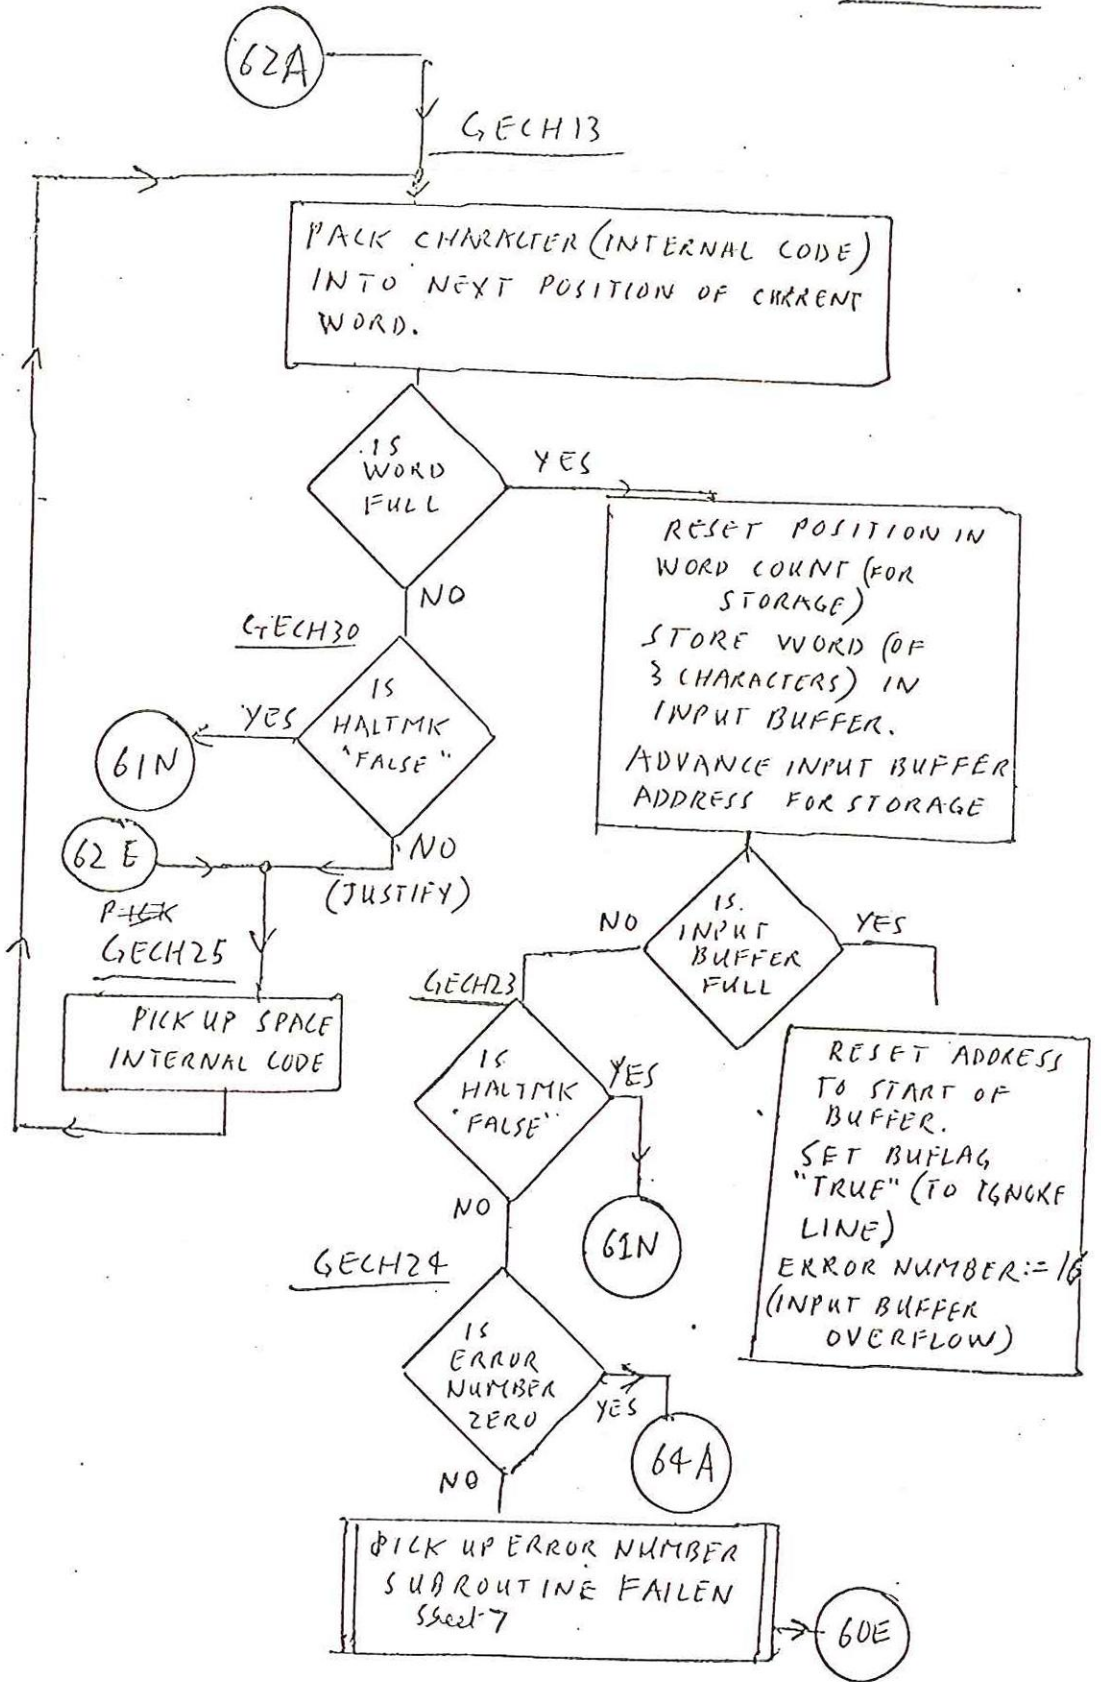 62A
GECH13
PACK CHARACTER (INTERNAL CODE)
INTO NEXT POSITION OF CURRENT
WORD.
IS
WORD
FULL
YES
NO
RESET POSITION IN
WORD COUNT (FOR
STORAGE)
STORE WORD (OF
3 CHARACTERS) IN
INPUT BUFFER.
ADVANCE INPUT BUFFER
ADDRESS FOR STORAGE
GECH30
IS
HALTMK
"FALSE"
YES
61N
NO
(JUSTIFY)
62E
GECH25
PICK UP SPACE
INTERNAL CODE
IS
INPUT
BUFFER
FULL
NO
YES
RESET ADDRESS
TO START OF
BUFFER.
SET BUFLAG
"TRUE" (TO IGNORE
LINE)
ERROR NUMBER:= 16
(INPUT BUFFER
OVERFLOW)
GECH23
IS
HALTMK
"FALSE"
YES
61N
NO
GECH24
IS
ERROR
NUMBER
ZERO
YES
64A
NO
PICK UP ERROR NUMBER
SUBROUTINE FAILEN
Sheet 7
60E